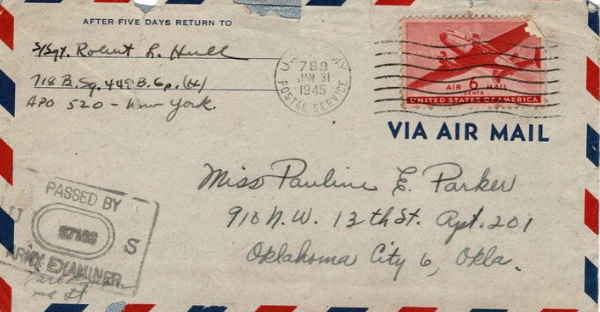 AFTER FIVE DAYS RETURN TO
S/Sgt. Robert L. Hull
718 B. Sq. 449 B. Gp. (H)
APO 520 - New York.
U.S. ARMY
769
JAN 31
1945
POSTAL SERVICE
AIR 6 MAIL
CENTS
UNITED STATES OF AMERICA
VIA AIR MAIL
Miss Pauline E. Parker
910 N.W. 12th St. Apt. 201
Oklahoma City 6, Okla.
PASSED BY
U S
ARMY EXAMINER